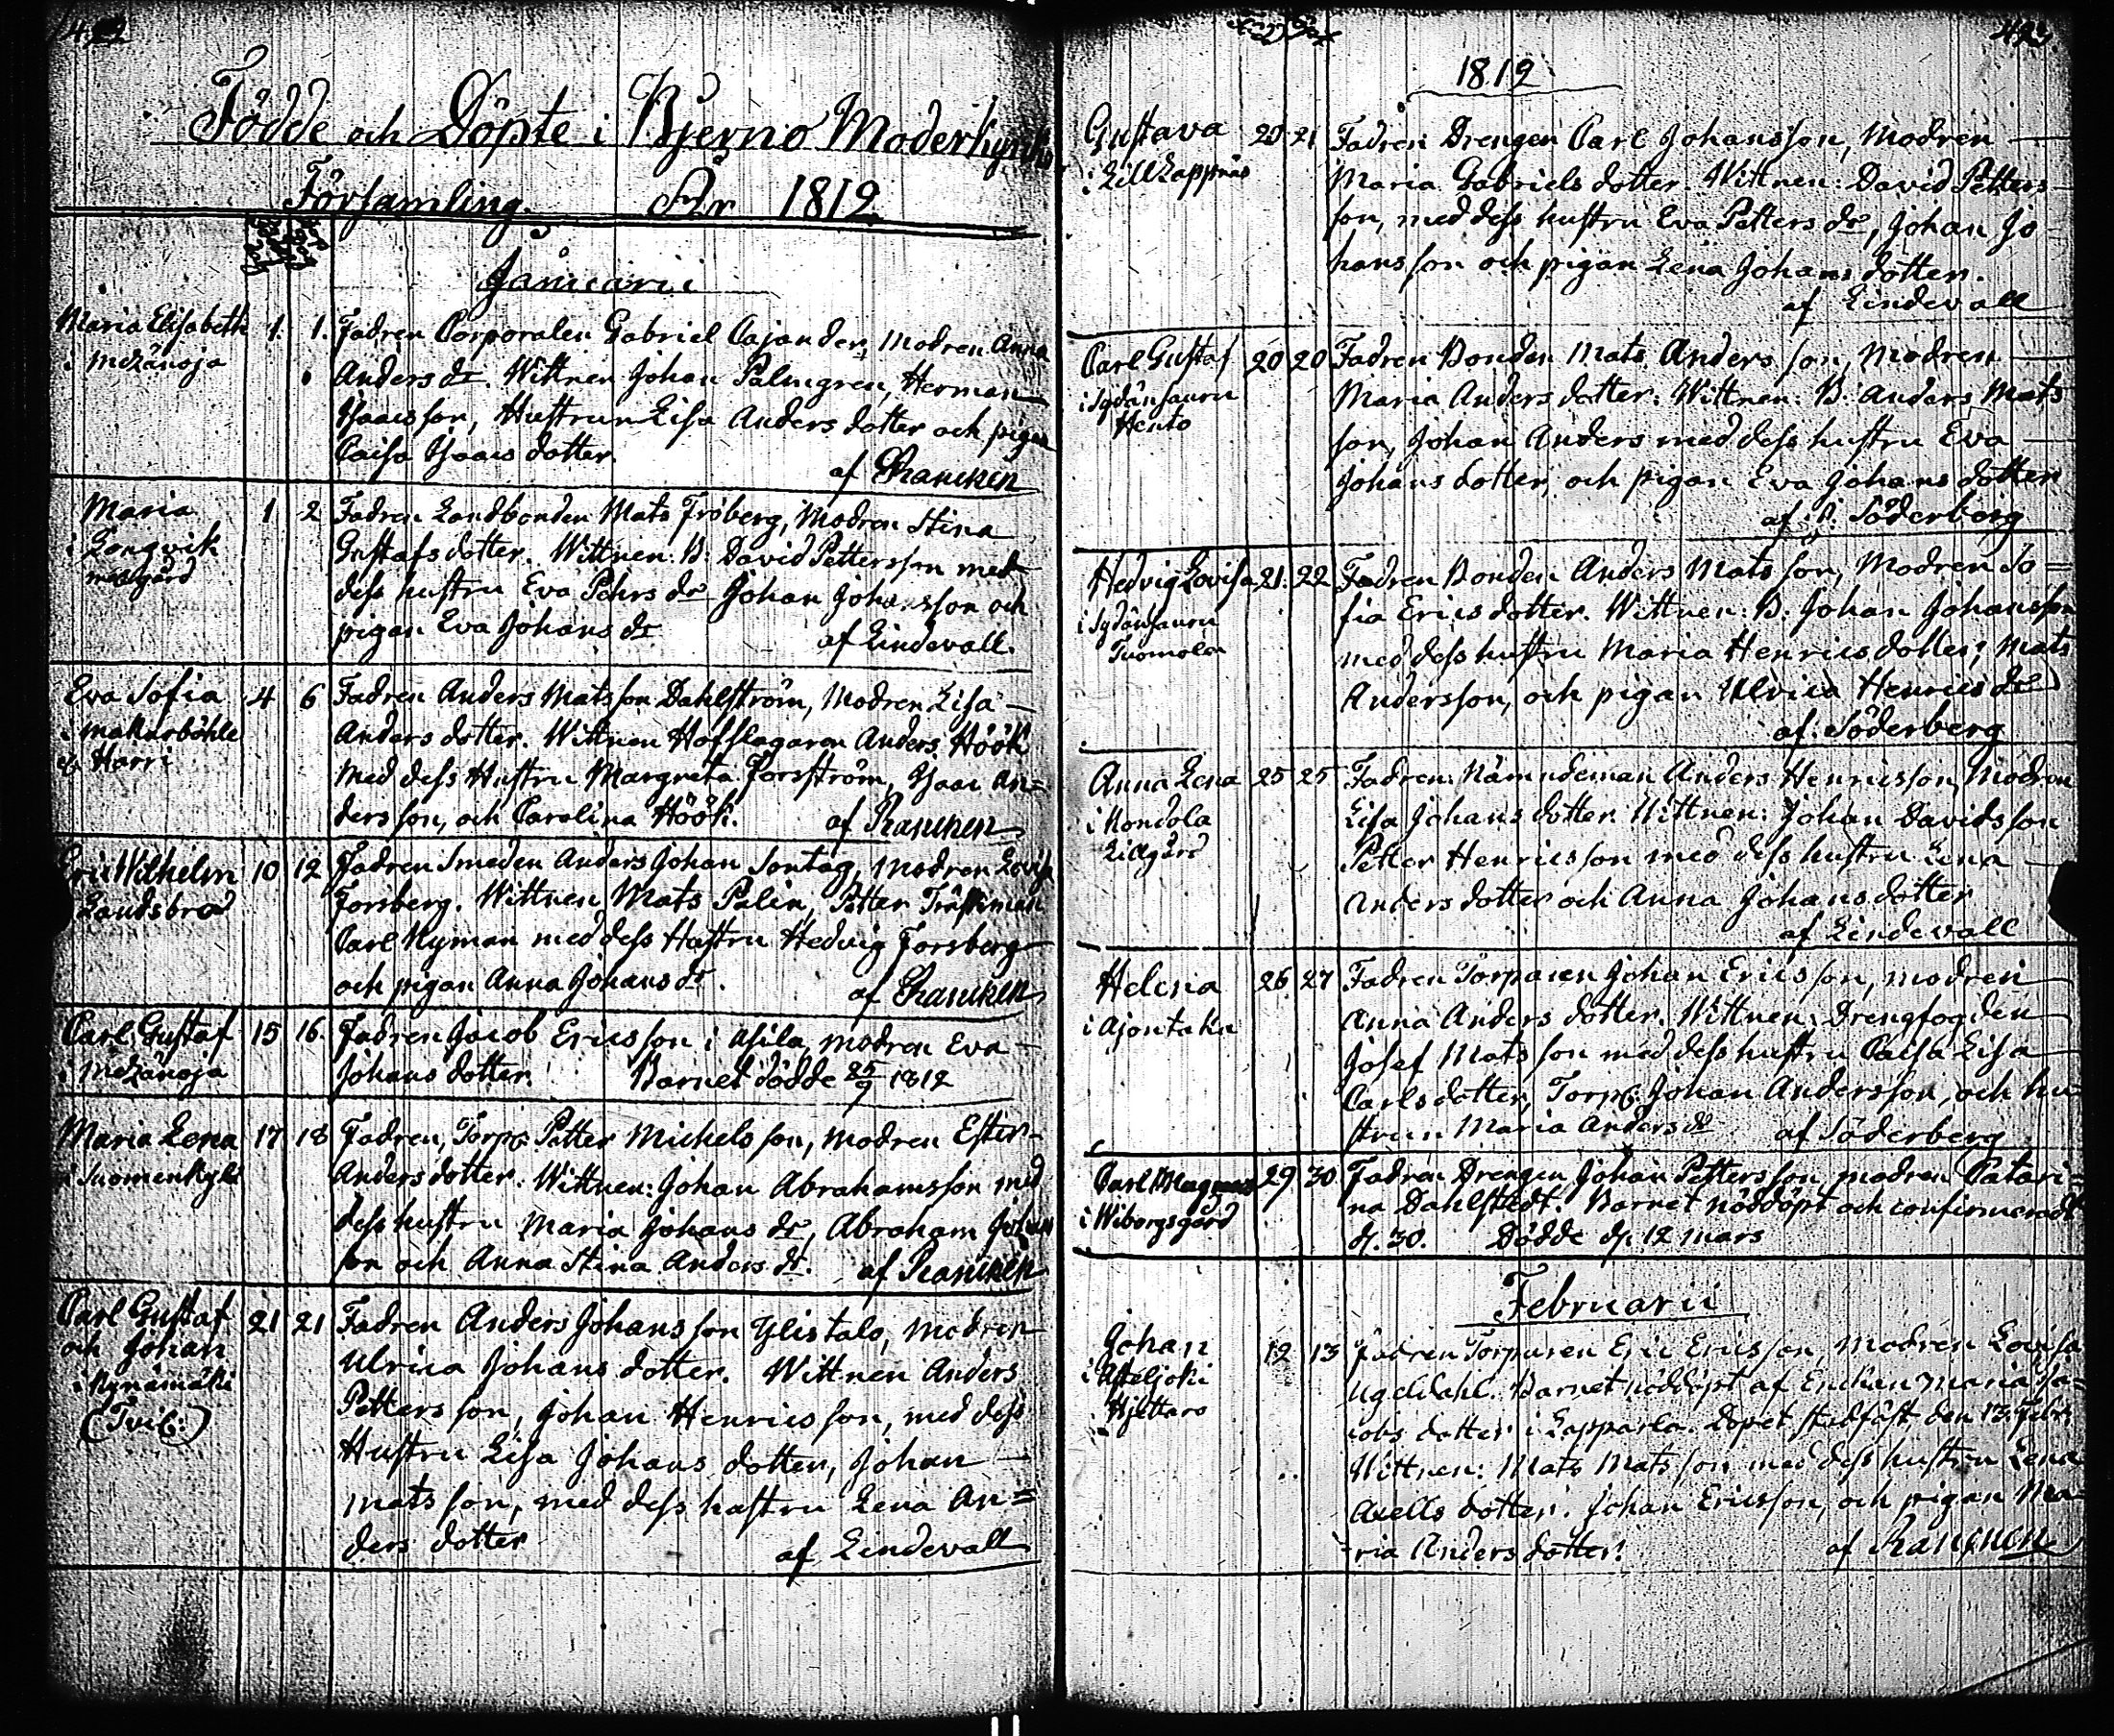 Födde och Döpte i Bjerno Moderkyrko
Församling. År 1812
Januarii
Maria Elisabeth 1. 1. Fadren Corporalen Gabriel Cajander, Modren Anna
i Mezänoja Anders dr. Wittnen Johan Palmgren, Herman
Isaacsson, Hustrun Lisa Anders dotter och pigan
Caisa Isaacs dotter. af Rancken
Maria 1 2 Fadren Landbonden Mats Fröberg, Modren Stina
i Longvik Gustafsdotter. Wittnen: B: David Pettersson med
dess hustru Eva Pehrs dr Johan Johansson och
pigan Eva Johans dr af Lindevall.
Eva Sofia 4 6 Fadren Anders Matsson Dahlström, Modren Lisa
i Mattarböhle Anders dotter. Wittnen Hofslagaren Anders Höök
Harri med dess Hustru Margreta Forsström, Isaac An=
dersson, och Carolina Höök. af Rancken
Eric Wilhelm 10 12 Fadren Smeden Anders Johan Sontag, Modren Lovisa
Landsbro Forsberg. Wittnen Mats Palin, Petter Träskman
Carl Nyman med dess Hustru Hedvig Forsberg
och pigan Anna Johans dr. af Rancken
Carl Gustaf 15 16. Fadren Jacob Ericsson i Asila, modren Eva
i Mezänoja Johans dotter. Barnet dödde 25/9 1812
Maria Lena 17 18 Fadren, Torp. Petter Michelsson, modren Ester
i Suomenkylä Andersdotter. Wittnen: Johan Abrahamsson med
dess hustru Maria Johans dr, Abraham Johans
son och Anna Stina Anders dr. af Rancken
Carl Gustaf 21 21 Fadren Anders Johansson Ylistalo, modren
och Johan Ulrica Johans dotter. Wittnen Anders
i Kynämäki Pettersson, Johan Henricsson, med dess
(Tvil:) Hustru Lisa Johans dotter, Johan
Matsson, med dess hustru Lena An=
ders dotter af Lindevall
1812
Gustava 20 21 Fadren Drengen Carl Johansson, Modren
i Lill Lappnäs Maria Gabriels dotter. Wittnen: David Petters
son, med dess hustru Eva Petters dr, Johan Jo
hansson och pigan Lena Johans dotter.
af Lindevall
Carl Gustaf 20 20 Fadren Bonden Mats Andersson, Modren
i Sydänsauru Maria Anders dotter. Wittnen: B: Anders Mats
Hento son, Johan Anders med dess hustru Eva
Johans dotter, och pigan Eva Johans dotter
af Söderberg
Hedvig Lovisa 21. 22 Fadren Bonden Anders Matsson, Modren So=
i Sydänsauru fia Erics dotter. Wittnen: B: Johan Johansson
Tuomola med dess hustru Maria Henrics dotter, Mats
Andersson, och pigan Ulrica Henrics dr
af Söderberg
Anna Lena 25 25 Fadren: Nämndeman Anders Henricsson, Modren
i Kondola Lisa Johans dotter Wittnen: Johan Davidsson
Lillgård Petter Henricsson med dess hustru Lena
Anders dotter och Anna Johans dotter
af Lindevall
Helena 26 27 Fadren Torparen Johan Ericsson, modren
i Ajontaka Anna Anders dotter. Wittnen: Drengfogden
Josef Matsson med dess hustru Caisa Lisa
Carls dotter, Torp. Johan Andersson, och hu=
strun Maria Anders dr af Söderberg
Carl Magnus 29 30 Fadren Drengen Johan Pettersson, modren Catari=
i Wiborgsgård na Dahlstedt. Barnet nöddöpt och confirmeradt
d. 30. Dödde d. 12 mars
Februarii
Johan 12 13 Fadren Torparen Eric Ericsson, Modren Lovisa
i Asteljoki Ugeldahl. Barnet nöddöpt af Enckan Maria Ja=
Hjeltaro cobs dotter i Lapparla. Dopet stadfäst den 13 Febr.
Wittnen: Mats Matsson med dess hustru Lena
Axells dotter. Johan Ericsson, och pigan Ma
ria Anders dotter. af Rancken